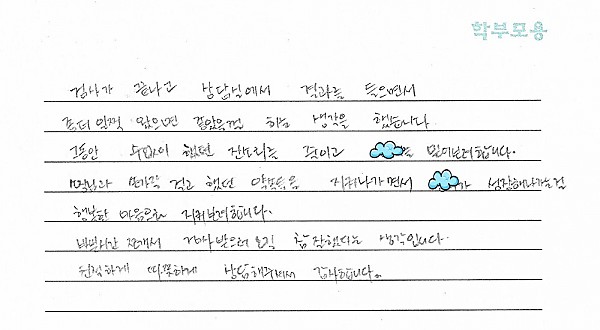 학부모용
검사가 끝나고 상담실에서 결과를 들으면서
좀더 일찍 왔으면 좋았을걸 하는 생각을 했습니다.
그동안 수없이 했던 잔소리는 줄이고 를 믿어보려합니다.
손가락 걸고 했던 약속들을 지켜나가면서 가 성장해나가는걸
행복한 마음으로 지켜보려합니다.
검사받으러 오길 참 잘했다는 생각입니다.
친절하게 따뜻하게 상담해주셔서 감사합니다.